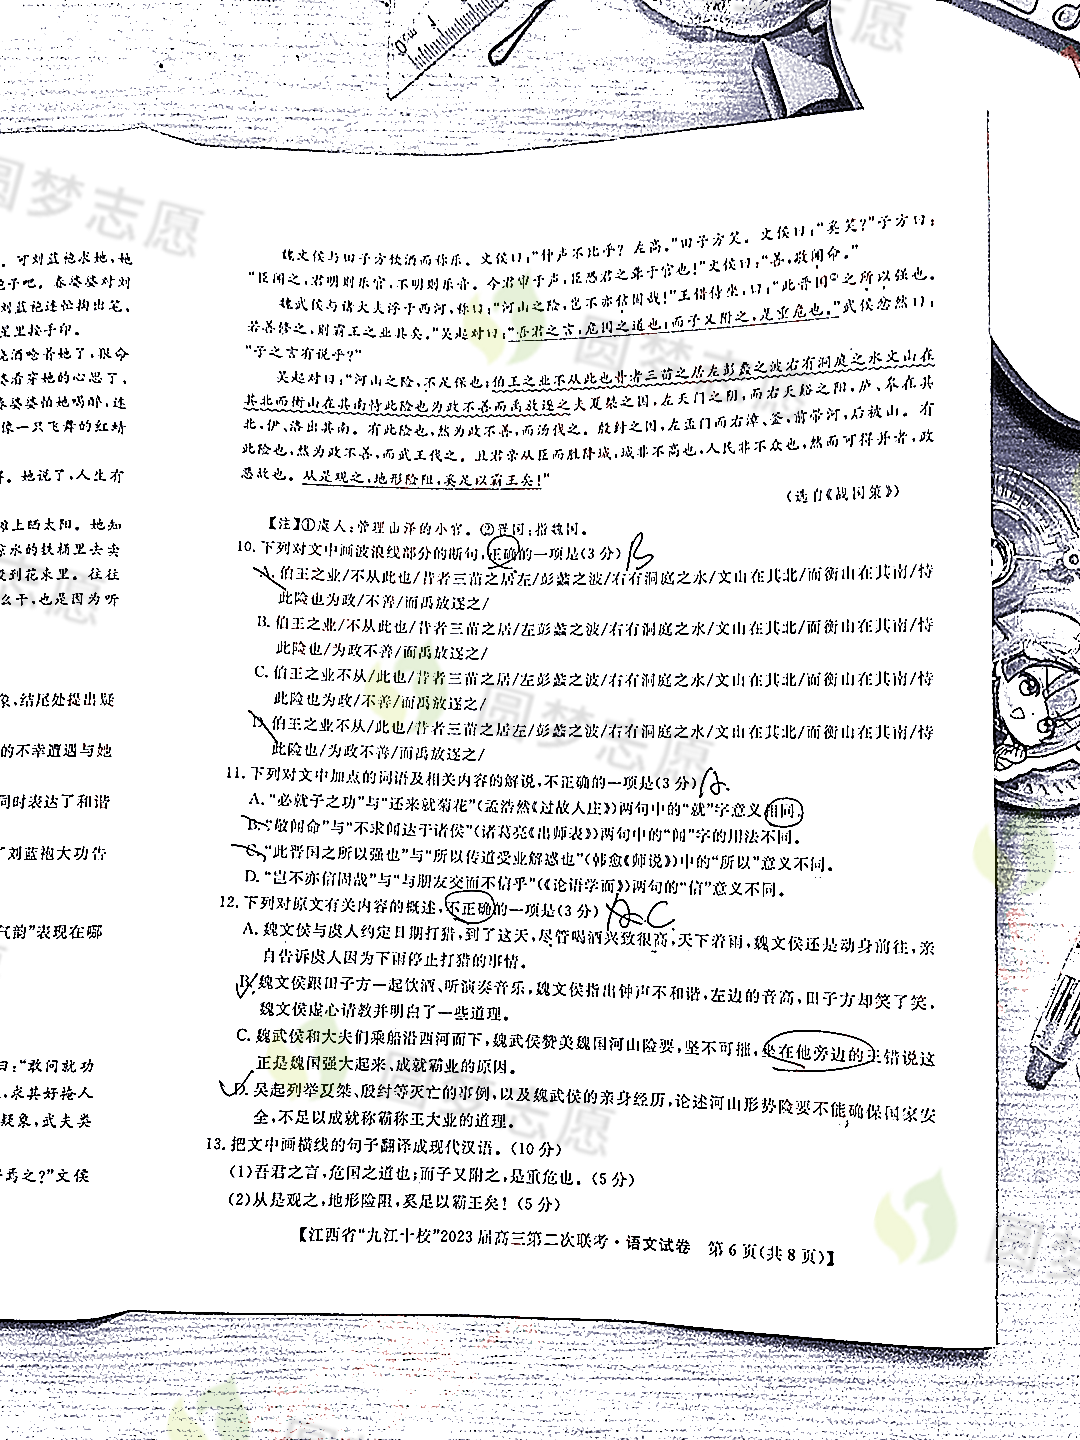 。可刘蓝袍求她,她
子吧。春婆婆对刘
刘蓝袍连忙掏出笔。
里按手印。
酒呛着她了,很分
看穿她的心思了。
春婆婆怕她喝醉,连
像一只飞舞的红蜻
。她说了,人生有
上晒太阳。她知
水的铁桶里去卖
到花束里。往往
么干,也是因为听
象,结尾处提出疑
的不幸遭遇与她
同时表达了和谐
刘蓝袍大功告
气韵”表现在哪
曰:“敢问就功
,求其好掩人
疑象,武夫类
焉之?”文侯
魏文侯与田子方饮酒而称乐。文侯曰:“钟声不比乎?左高。”田子方笑。文侯曰:“奚笑?”子方曰:
“臣闻之,君明则乐官,不明则乐音。今君审于声,臣恐君之聋于官也!”文侯曰:“善,敬闻命。”
魏武侯与诸大夫浮于西河,称曰:“河山之险,岂不亦信固哉!”王错侍坐,曰:“此晋国②之所以强也。
若善修之,则霸王之业具矣。”吴起对曰:“吾君之言,危国之道也;而子又附之,是重危也。”武侯忿然曰:
“子之言有说乎?”
吴起对曰:“河山之险,不足保也;伯王之业不从此也昔者三苗之居左彭蠡之波右有洞庭之水文山在
其北而衡山在其南恃此险也为政不善而禹放逐之夫夏桀之国,左天门之阴,而右天谿之阳,庐、睾在其
北,伊、洛出其南。有此险也,然为政不善,而汤伐之。殷纣之国,左孟门而右漳、釜,前带河,后被山。有
此险也,然为政不善,而武王伐之。且君亲从臣而胜降城,城非不高也,人民非不众也,然而可得并者,政
恶故也。从是观之,地形险阻,奚足以霸王矣!”
(选自《战国策》)
【注】①虞人:管理山泽的小官。②晋国:指魏国。
10.下列对文中画波浪线部分的断句,正确的一项是(3分) B
A.伯王之业/不从此也/昔者三苗之居左/彭蠡之波/右有洞庭之水/文山在其北/而衡山在其南/恃
此险也为政/不善/而禹放逐之/
B.伯王之业/不从此也/昔者三苗之居/左彭蠡之波/右有洞庭之水/文山在其北/而衡山在其南/恃
此险也/为政不善/而禹放逐之/
C.伯王之业不从/此也/昔者三苗之居/左彭蠡之波/右有洞庭之水/文山在其北/而衡山在其南/恃
此险也为政/不善/而禹放逐之/
D.伯王之业不从/此也/昔者三苗之居左/彭蠡之波/右有洞庭之水/文山在其北/而衡山在其南/恃
此险也/为政不善/而禹放逐之/
11.下列对文中加点的词语及相关内容的解说,不正确的一项是(3分) A.
A.“必就子之功”与“还来就菊花”(孟浩然《过故人庄》)两句中的“就”字意义相同。
B.“敬闻命”与“不求闻达于诸侯”(诸葛亮《出师表》)两句中的“闻”字的用法不同。
C.“此晋国之所以强也”与“所以传道受业解惑也”(韩愈《师说》)中的“所以”意义不同。
D.“岂不亦信固哉”与“与朋友交而不信乎”(《论语学而》)两句的“信”意义不同。
12.下列对原文有关内容的概述,不正确的一项是(3分) C
A.魏文侯与虞人约定日期打猎,到了这天,尽管喝酒兴致很高,天下着雨,魏文侯还是动身前往,亲
自告诉虞人因为下雨停止打猎的事情。
B.魏文侯跟田子方一起饮酒、听演奏音乐,魏文侯指出钟声不和谐,左边的音高,田子方却笑了笑。
魏文侯虚心请教并明白了一些道理。
C.魏武侯和大夫们乘船沿西河而下,魏武侯赞美魏国河山险要,坚不可摧,坐在他旁边的王错说这
正是魏国强大起来、成就霸业的原因。
D.吴起列举夏桀、殷纣等灭亡的事例,以及魏武侯的亲身经历,论述河山形势险要不能确保国家安
全,不足以成就称霸称王大业的道理。
13.把文中画横线的句子翻译成现代汉语。(10分)
(1)吾君之言,危国之道也;而子又附之,是重危也。(5分)
(2)从是观之,地形险阻,奚足以霸王矣!(5分)
【江西省“九江十校”2023届高三第二次联考·语文试卷 第6页(共8页)】
圆梦志愿
圆梦志愿
圆梦志愿
圆梦志愿
圆梦志愿
圆梦志愿